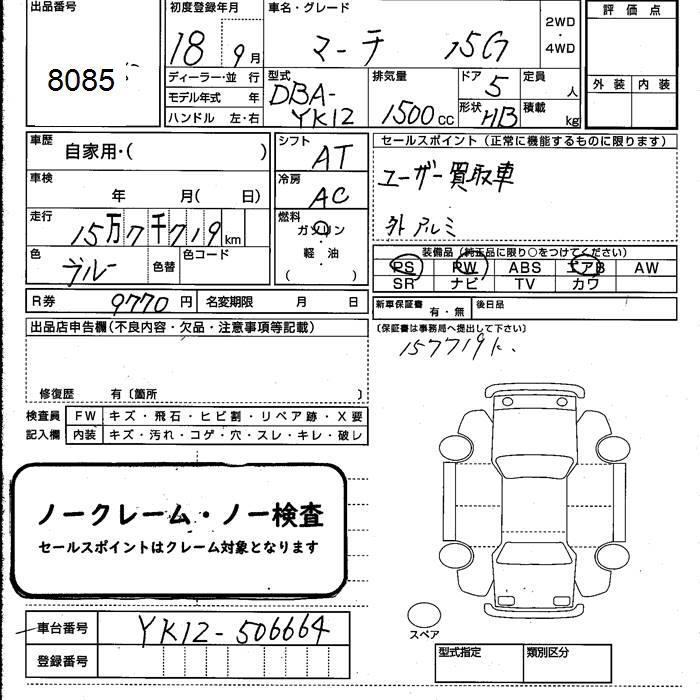 出品番号
8085
初度登録年月
18 9月
車名・グレード
マーチ 15G
2WD
・
4WD
評価点
外装 内装
ディーラー・並 行
モデル年式 年
ハンドル 左・右
型式
DBA-
YK12
排気量
1500cc
ドア 5
形状 HB
定員 人
積載 kg
車歴
自家用・( )
シフト
AT
車検
年 月( 日)
冷房
AC
走行
15万7千719km
燃料
ガソリン
・
軽 油
( )
色
ブルー
色替
色コード
R券 9770円
名変期限 月 日
セールスポイント(正常に機能するものに限ります)
ユーザー買取車
外 アルミ
装備品(純正品に限り○をつけてください)
PS PW ABS エアB AW
SR ナビ TV カワ
新車保証書 有・無
後日品
(保証書は事務局へ提出して下さい)
157719k.
出品店申告欄(不良内容・欠品・注意事項等記載)
修復歴 有〔箇所 〕
検査員
記入欄
FW キズ・飛石・ヒビ割・リペア跡・X要
内装 キズ・汚れ・コゲ・穴・スレ・キレ・破レ
ノークレーム・ノー検査
セールスポイントはクレーム対象となります
車台番号 YK12-506664
登録番号
スペア
型式指定
類別区分